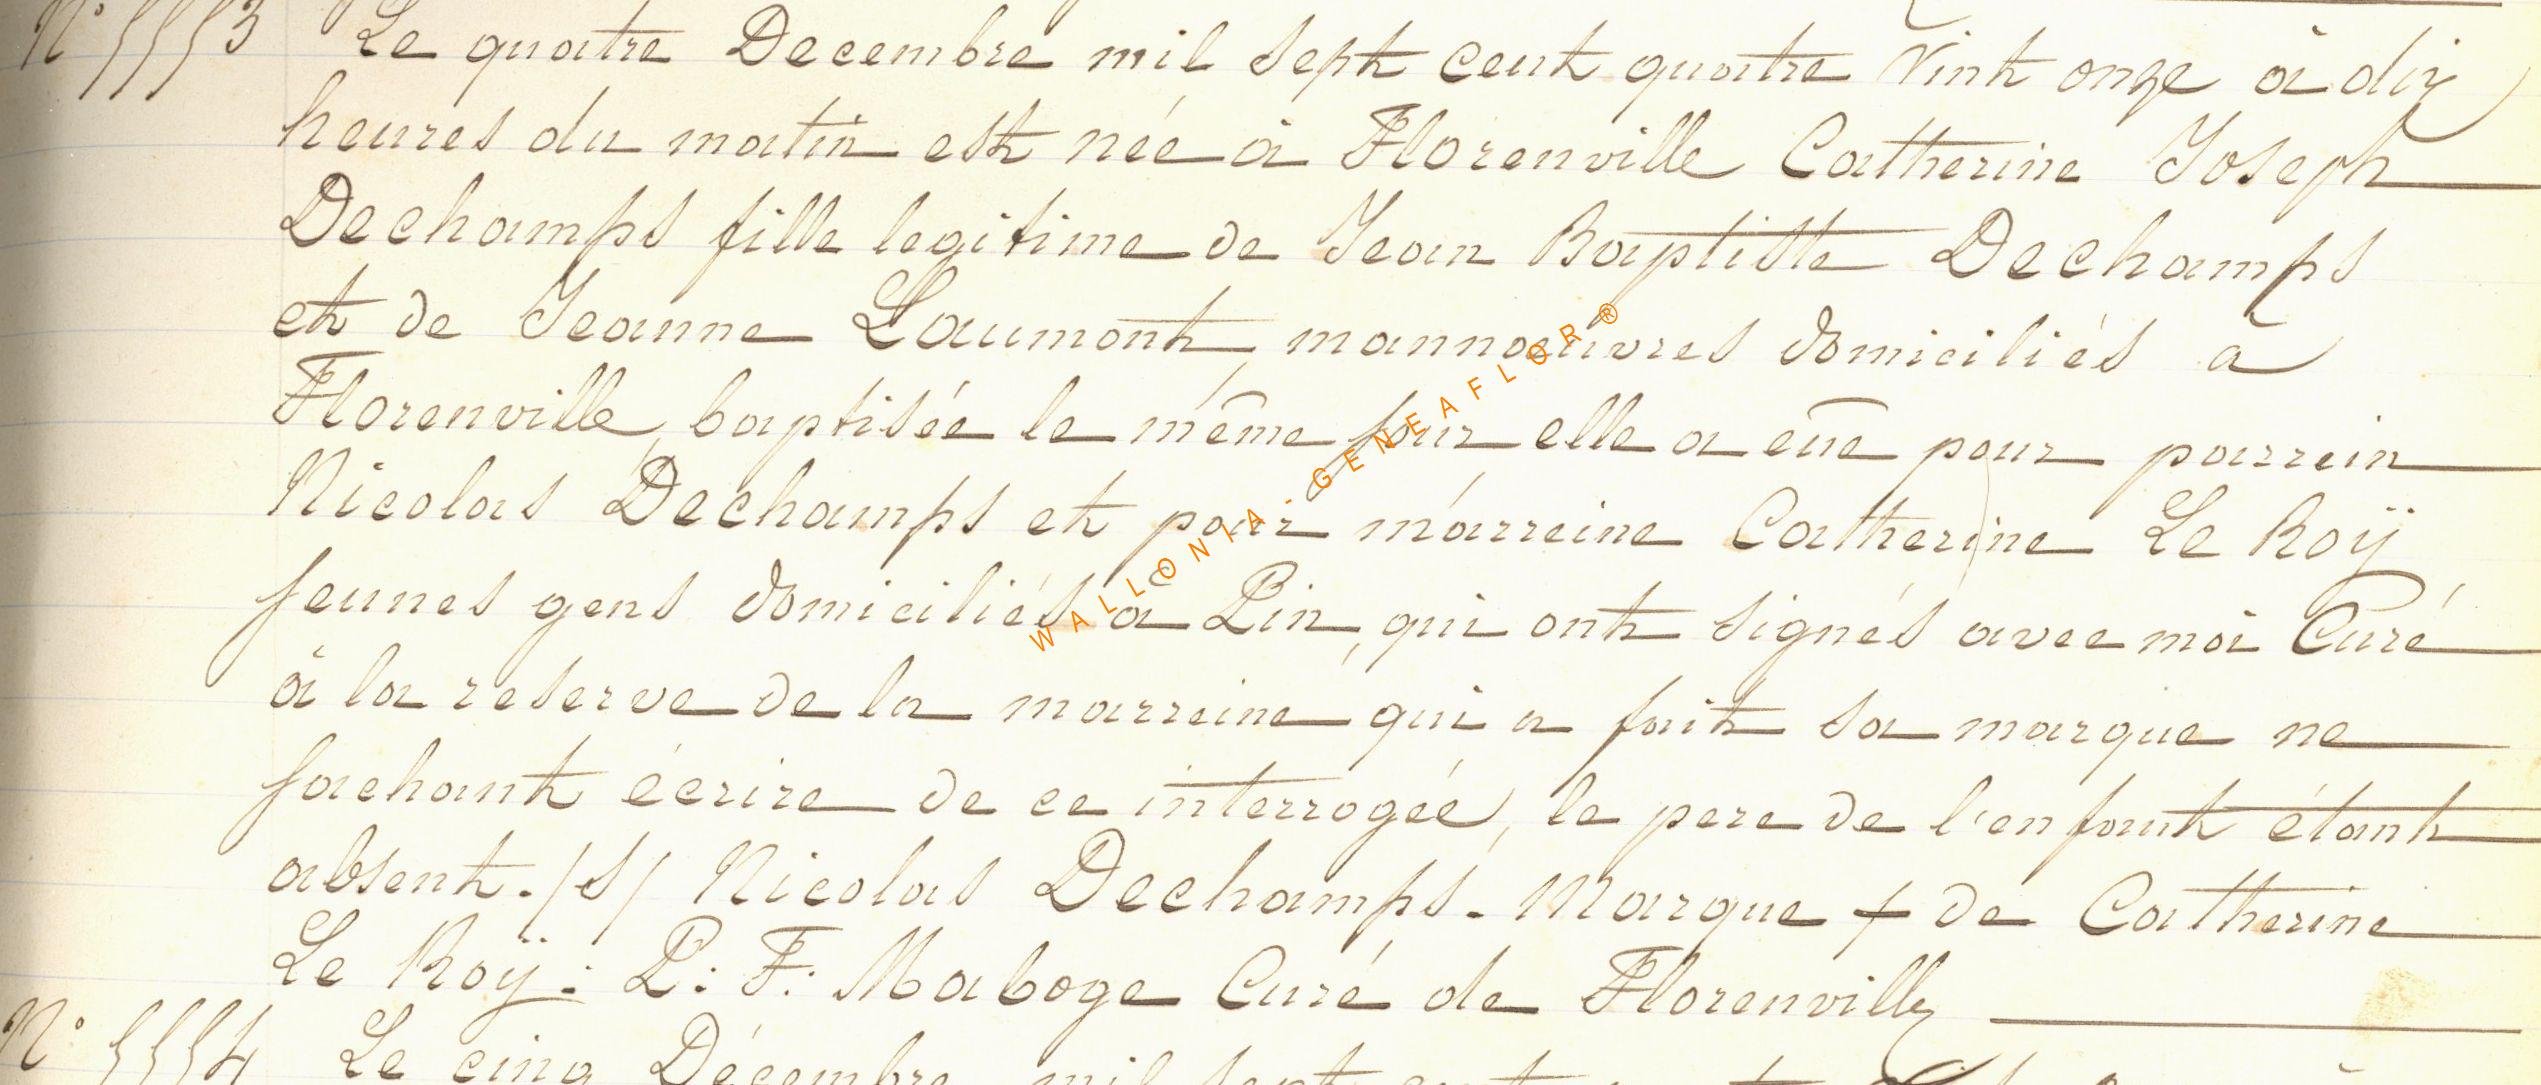 N° 5553 Le quatre Decembre mil sept cent quatre vint onze à dix
heures du matin est née à Florenville Catherine Joseph
Dechamps fille legitime de Jean Baptiste Dechamps
et de Jeanne Laumont, mannoeuvres domiciliés à
Florenville, baptisée le même jour elle a eue pour parrein
Nicolas Dechamps et pour marreine Catherine Le Roÿ
jeunes gens domiciliés à Pin, qui ont signés avec moi Curé
à la reserve de la marreine qui a fait sa marque ne
sachant écrire de ce interrogée, le pere de l'enfant étant
absent. /S/ Nicolas Dechamps. Marque + de Catherine
Le Roÿ: P: F: Maboge Curé de Florenville
N° 5554 Le cinq Décembre mil sept cent
WALLONIA - GENEAFLOR ®